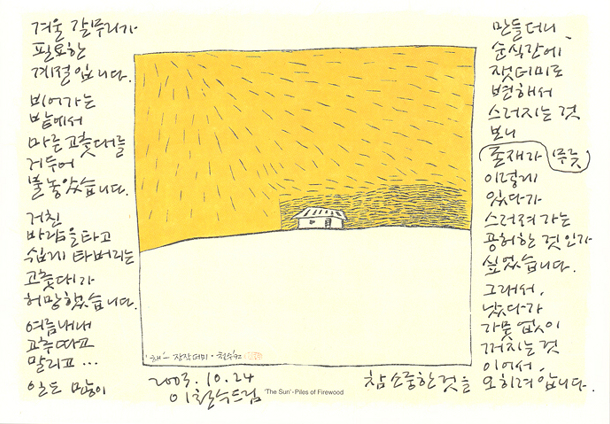 겨울 갈무리가
필요한
계절입니다.
비어가는
밭에서
마른 고춧대를
거두어
불 놓았습니다.
거친
바람을 타고
쉽게 타버리는
고춧대가
허망했습니다.
여름내내
고추따고
말리고...
일도 많이
만들더니,
순식간에
잿더미로
변해서
스러지는 것
보니
존재가 문득
이렇게
있다가
스러져 가는
공허한 것인가
싶었습니다.
그래서,
났다가
가뭇없이
꺼지는 것
이어서,
참 소중한 것을 오히려 압니다.
장작더미·철수 02
2003. 10. 24
이철수드림
'The Sun'- Piles of Firewood